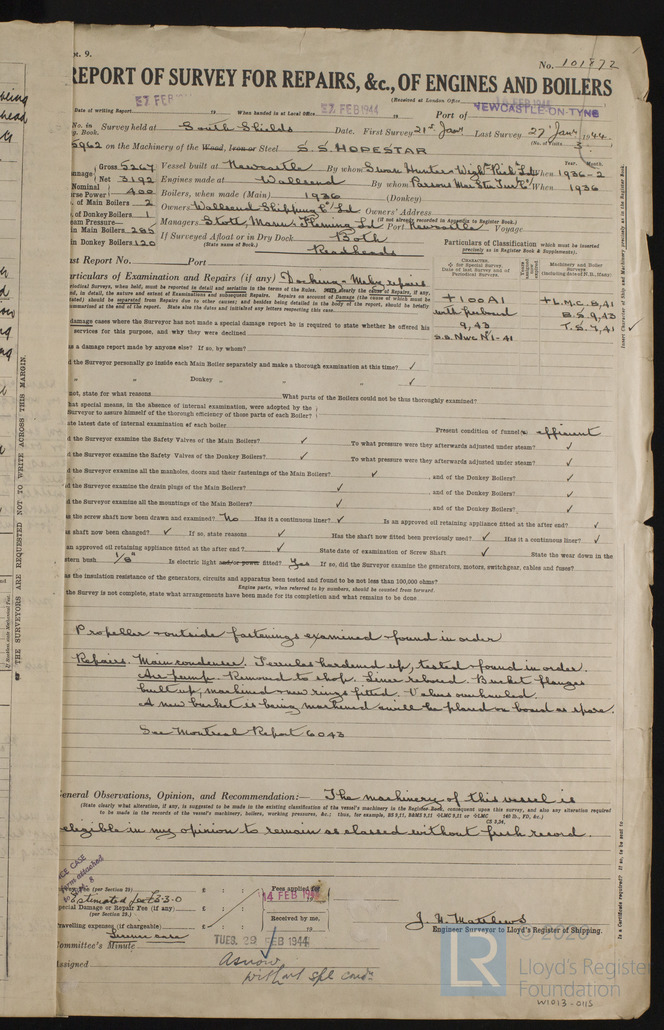 pt. 9.
No. 101872
REPORT OF SURVEY FOR REPAIRS, &c., OF ENGINES AND BOILERS
(Received at London Office
Date of writing Report 19 When handed in at Local Office 19 Port of
27 FEB 27 FEB 1944 NEWCASTLE-ON-TYNE
No. in Survey held at South Shields Date. First Survey 21st Jan Last Survey 27 Jan 1944
g. Book. (No. of Visits 3
5962 on the Machinery of the Wood, Iron or Steel S.S. HOPESTAR
Gross 5267 Vessel built at Newcastle By whom Swan Hunter & Wigh Rich Ld When 1936-2
Net 3192 Engines made at Wallsend By whom When 1936
Nominal
rse Power 400 Boilers, when made (Main) 1936 (Donkey)
. of Main Boilers 2 Owners Wallsend Shipping Co Ld Owners' Address
(if not already recorded in Appendix to Register Book.)
of Donkey Boilers 1 Managers Stott, Mann & Fleming Ld Port Newcastle Voyage
eam Pressure—
n Main Boilers If Surveyed Afloat or in Dry Dock Both
(State name of Dock.)
n Donkey Boilers 120 Readheads
st Report No. Port
Particulars of Classification which must be inserted
precisely as in Register Book & Supplements).
articulars of Examination and Repairs (if any) Docking - Mchy repairs
+100A1 +L.M.C. 8,41
with freeboard B.S. 9,43
9,43 T.S. 7,41
S.S. Nwc No1-41
damage cases where the Surveyor has not made a special damage report he is required to state whether he offered his
services for this purpose, and why they were declined
as a damage report made by anyone else? If so, by whom?
d the Surveyor personally go inside each Main Boiler separately and make a thorough examination at this time? ✓
" " Donkey " " " ✓
not, state for what reasons What parts of the Boilers could not be thus thoroughly examined?
hat special means, in the absence of internal examination, were adopted by the
Surveyor to assure himself of the thorough efficiency of those parts of each Boiler?
ate latest date of internal examination of each boiler Present condition of funnels efficient
d the Surveyor examine the Safety Valves of the Main Boilers? ✓ To what pressure were they afterwards adjusted under steam? ✓
d the Surveyor examine the Safety Valves of the Donkey Boilers? ✓ To what pressure were they afterwards adjusted under steam? ✓
d the Surveyor examine all the manholes, doors and their fastenings of the Main Boilers? ✓ , and of the Donkey Boilers? ✓
d the Surveyor examine the drain plugs of the Main Boilers? ✓ , and of the Donkey Boilers? ✓
d the Surveyor examine all the mountings of the Main Boilers? ✓ , and of the Donkey Boilers? ✓
s the screw shaft now been drawn and examined? No Has it a continuous liner? ✓ Is an approved oil retaining appliance fitted at the after end? ✓
s shaft now been changed? ✓ If so, state reasons ✓ Has the shaft now fitted been previously used? ✓ Has it a continuous liner? ✓
an approved oil retaining appliance fitted at the after end? ✓ State date of examination of Screw Shaft ✓ State the wear down in the
stern bush 1/8" Is electric light and/or power fitted? Yes If so, did the Surveyor examine the generators, motors, switchgear, cables and fuses?
as the insulation resistance of the generators, circuits and apparatus been tested and found to be not less than 100,000 ohms?
Engine parts, when referred to by numbers, should be counted from forward.
the Survey is not complete, state what arrangements have been made for its completion and what remains to be done
Propeller & outside fastenings examined & found in order
Repairs. Main condenser. Ferrules hardened up, tested & found in order.
Air pump. Removed to shop. Liner rebored. Bucket flanges
built up, machined & new rings fitted. Valves overhauled.
A new bucket is being machined & will be placed on board as spare.
See Montreal Report 6043
General Observations, Opinion, and Recommendation:— The machinery of this vessel is
(State clearly what alteration, if any, is suggested to be made in the existing classification of the vessel's machinery in the Register Book, consequent upon this survey, and also any alteration required
to be made in the records of the vessel's machinery, boilers, working pressures, &c.: thus, for example, BS 9,11, B&MS 9,11 +LMC 9,11 or +LMC 140 lb., FD, &c.)
CS 3,34.
eligible in my opinion to remain as classed without fresh record.
Survey Fee (per Section 29) £ : : Fees applied for
Estimated fee £3-3-0 14 FEB 19
Special Damage or Repair Fee (if any) £ : :
(per Section 29.) Received by me,
ravelling expenses (if chargeable) £ : : 19
J. H. Matthews
Engineer Surveyor to Lloyd's Register of Shipping.
Committee's Minute TUES. 29 FEB 1944
Assigned As now
without spl condn
THE SURVEYORS ARE REQUESTED NOT TO WRITE ACROSS THIS MARGIN.
LR
© 2020
Lloyd's Register
Foundation
W1013-0115